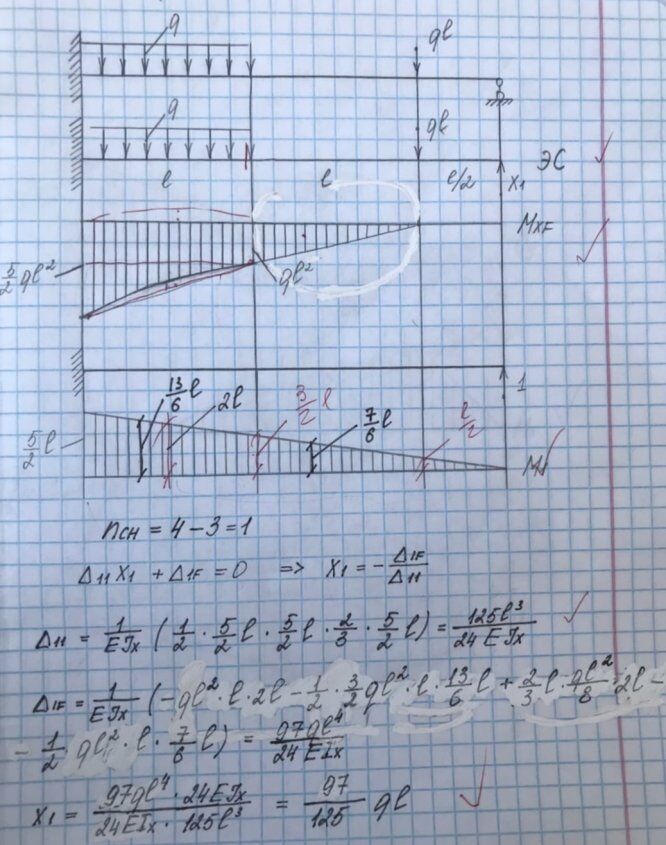 q
ql
q
ql
ЭС
l l l/2 X₁
M_XF
5/2 ql²
ql²
1
13/6 l 2l 3/2 l 7/6 l l/2
5/2 l
M₁
n_сн = 4 - 3 = 1
Δ₁₁ X₁ + Δ₁F = 0 => X₁ = - Δ₁F/Δ₁₁
Δ₁₁ = 1/EIx ( 1/2 · 5/2 l · 5/2 l · 2/3 · 5/2 l ) = 125l³/24EIx
Δ₁F = 1/EIx ( -ql² · l · 2l - 1/2 · 3/2 ql² · l · 13/6 l + 2/3 l · ql²/8 · 2l -
- 1/2 ql² · l · 7/6 l ) = 97ql⁴/24EIx
X₁ = 97ql⁴ · 24EIx / 24EIx · 125l³ = 97/125 ql